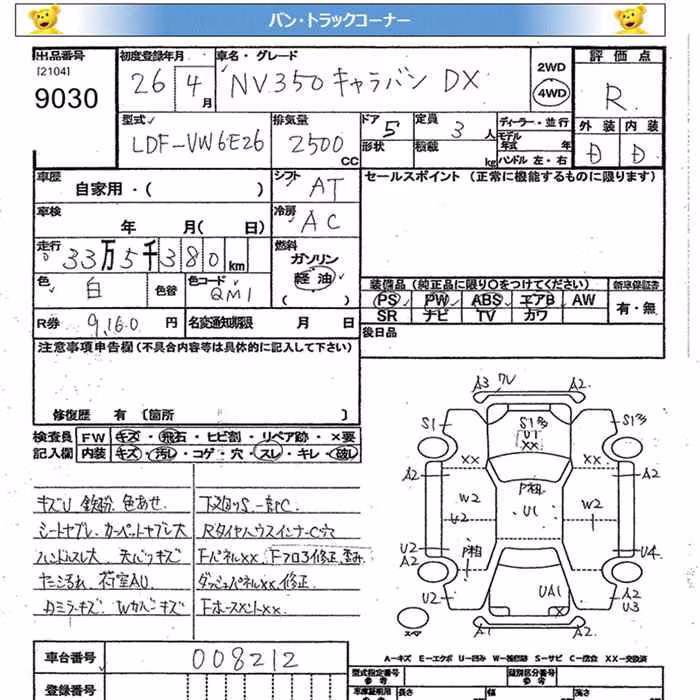 バン・トラックコーナー
出品番号 初度登録年月 車名・グレード 2WD 評価点
[2104]
9030 26年 4月 NV350キャラバン DX 4WD R
型式 排気量 ドア 定員 ディーラー・並行 外装 内装
LDF-VW6E26 2500CC 5 3人 モデル年式 年 D D
形状 積載 kg ハンドル 左・右
車歴 シフト セールスポイント (正常に機能するものに限ります)
自家用・( ) AT
車検 年 月( 日) 冷房 AC
走行 燃料
33万5千380km ガソリン
軽油
色 白 色替 色コード QM1 装備品 (純正品に限り○をつけてください) 新車保証書
PS PW ABS エアB AW 有・無
SR ナビ TV カワ
R券 9,160円 名変通知期限 月 日 後日品
注意事項申告欄 (不具合内容等は具体的に記入して下さい)
修復歴 有 [箇所 ]
検査員 FW キズ・飛石・ヒビ割・リペア跡・×要
記入欄 内装 キズ・汚レ・コゲ・穴・スレ・キレ・破レ
キズU 鉄粉 色あせ 下廻りS 一部PC
シートヤブレ カーペットヤブレ大 Rタイヤハウスインナー穴
ハンドルスレ大 天バリキズ FパネルXX
荷室AU ダッシュパネルXX修正
Wカバーキズ
A3 ワレ A2
S1 S1 S1
U1
XX
XX XX
A2 A2
W2 P相 W2
U2 U1
U2 P相 U4
A2 A2
U2 UA1 A2
X U3
スペア A1 A2
A−キズ E−エクボ U−凹み W−補修跡 S−サビ C−腐食 XX−交換済
車台番号 008212 型式指定番号 参考 類別区分番号 参考
登録番号 車庫証明用 長さ 幅 高さ